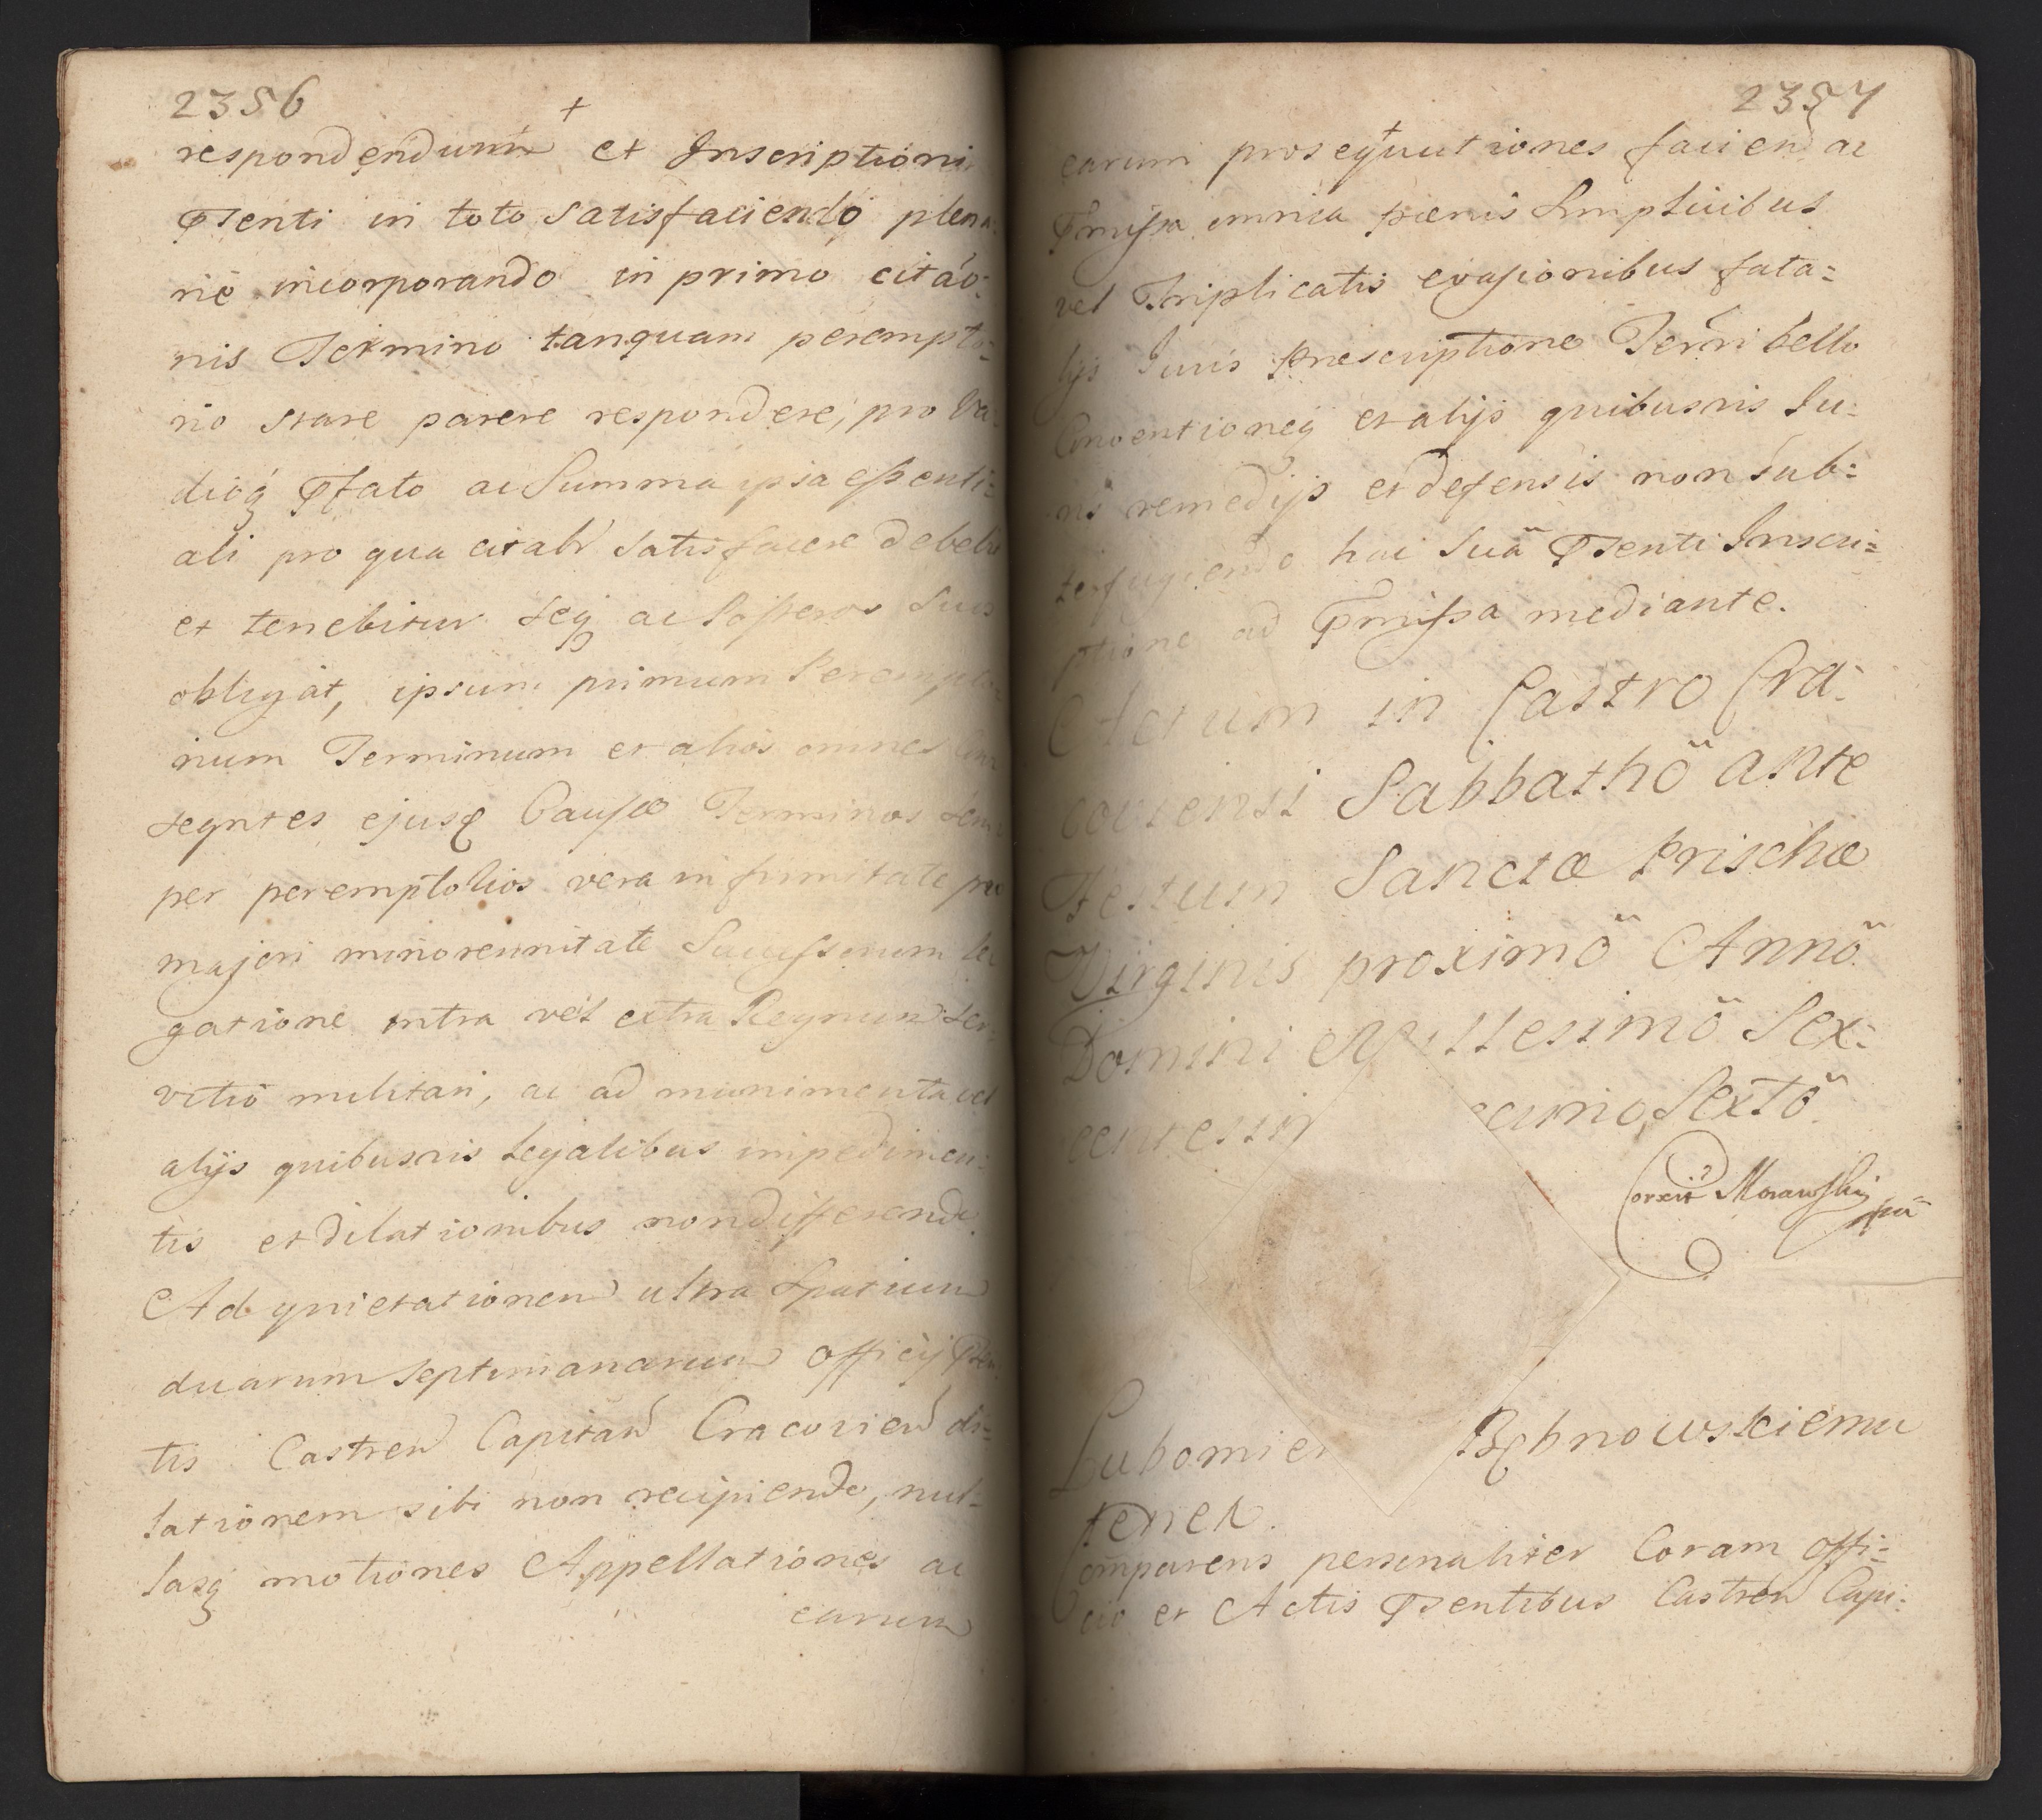 2356
+
respondendum et Inscriptioni
Pnti in toto Satisfaciendo plena-
rie incorporando in primo citâo:
nis Termino tanquam perempto=
rio stare parere respondere, pro Va:
dioq́ Pfato ac Summa ipsa essenti=
ali pro qua citabr Satisfacere debebit
et tenebitur seq ac Posteros Suos
obligat, ipsum primum Perempto
rium Terminum et alios omnes
seqntes ejusq Causæ Terminos sem
per peremptorios vera infirmitate pro
majori minorennitate Successorum le
gatione intra vel extra Regnum ser-
vitio militari, ac ad munimenta vel
alijs quibusvis legalibus impedimen:
tis et dilationibus non differendo
Ad quietationem ultra Spatium
duarum Septimanarum Officij Psen
tis Castren Capitan Cracovien di=
lationem sibi non recipiendo, nul=
lasq motiones Appellationes ac
earum
2357
earum prosequutiones faciend ac
Pmissa omnia pænis Simplicibus
vel Triplicatis evasionibus fata=
lijs Juris Præscriptione Terri bello
Conventioneq et alijs quibusvis Ju:
ris remedijs et defensis non sub:
terfugiendo hac Suã Psenti Inscri=
ptione ad Pmissa mediante.
Actum in Castro Cra:
coviensi Sabbathõ ante
Festum Sanctæ Prischæ
Virginis proximõ Annõ
Domini Millesimõ Sex:
centessim Sextõ
Correxit Morawski
mpa
Lubomier Rębnowskiemu
tenet.
Comparens personaliter Coram Offi=
cio et Actis Psentibus Castren Capi: